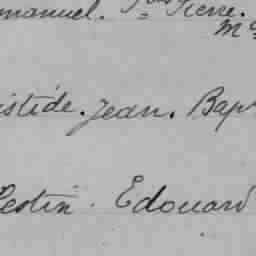 manuel. Pierre.
istide. Jean. Bap
lestin. Edouard